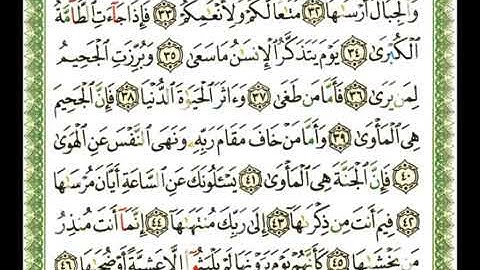 وَالْجِبَالَ أَرْسَىٰهَا ٣٢ مَتَـٰعًا لَّكُمْ وَلِأَنْعَـٰمِكُمْ ٣٣ فَإِذَا جَآءَتِ ٱلطَّآمَّةُ
ٱلْكُبْرَىٰ ٣٤ يَوْمَ يَتَذَكَّرُ ٱلْإِنسَـٰنُ مَا سَعَىٰ ٣٥ وَبُرِّزَتِ ٱلْجَحِيمُ
لِمَن يَرَىٰ ٣٦ فَأَمَّا مَن طَغَىٰ ٣٧ وَءَاثَرَ ٱلْحَيَوٰةَ ٱلدُّنْيَا ٣٨ فَإِنَّ ٱلْجَحِيمَ
هِىَ ٱلْمَأْوَىٰ ٣٩ وَأَمَّا مَنْ خَافَ مَقَامَ رَبِّهِۦ وَنَهَى ٱلنَّفْسَ عَنِ ٱلْهَوَىٰ
٤٠ فَإِنَّ ٱلْجَنَّةَ هِىَ ٱلْمَأْوَىٰ ٤١ يَسْـَٔلُونَكَ عَنِ ٱلسَّاعَةِ أَيَّانَ مُرْسَىٰهَا
٤٢ فِيمَ أَنتَ مِن ذِكْرَىٰهَآ ٤٣ إِلَىٰ رَبِّكَ مُنتَهَىٰهَآ ٤٤ إِنَّمَآ أَنتَ مُنذِرُ
مَن يَخْشَىٰهَا ٤٥ كَأَنَّهُمْ يَوْمَ يَرَوْنَهَا لَمْ يَلْبَثُوٓا۟ إِلَّا عَشِيَّةً أَوْ ضُحَىٰهَا ٤٦